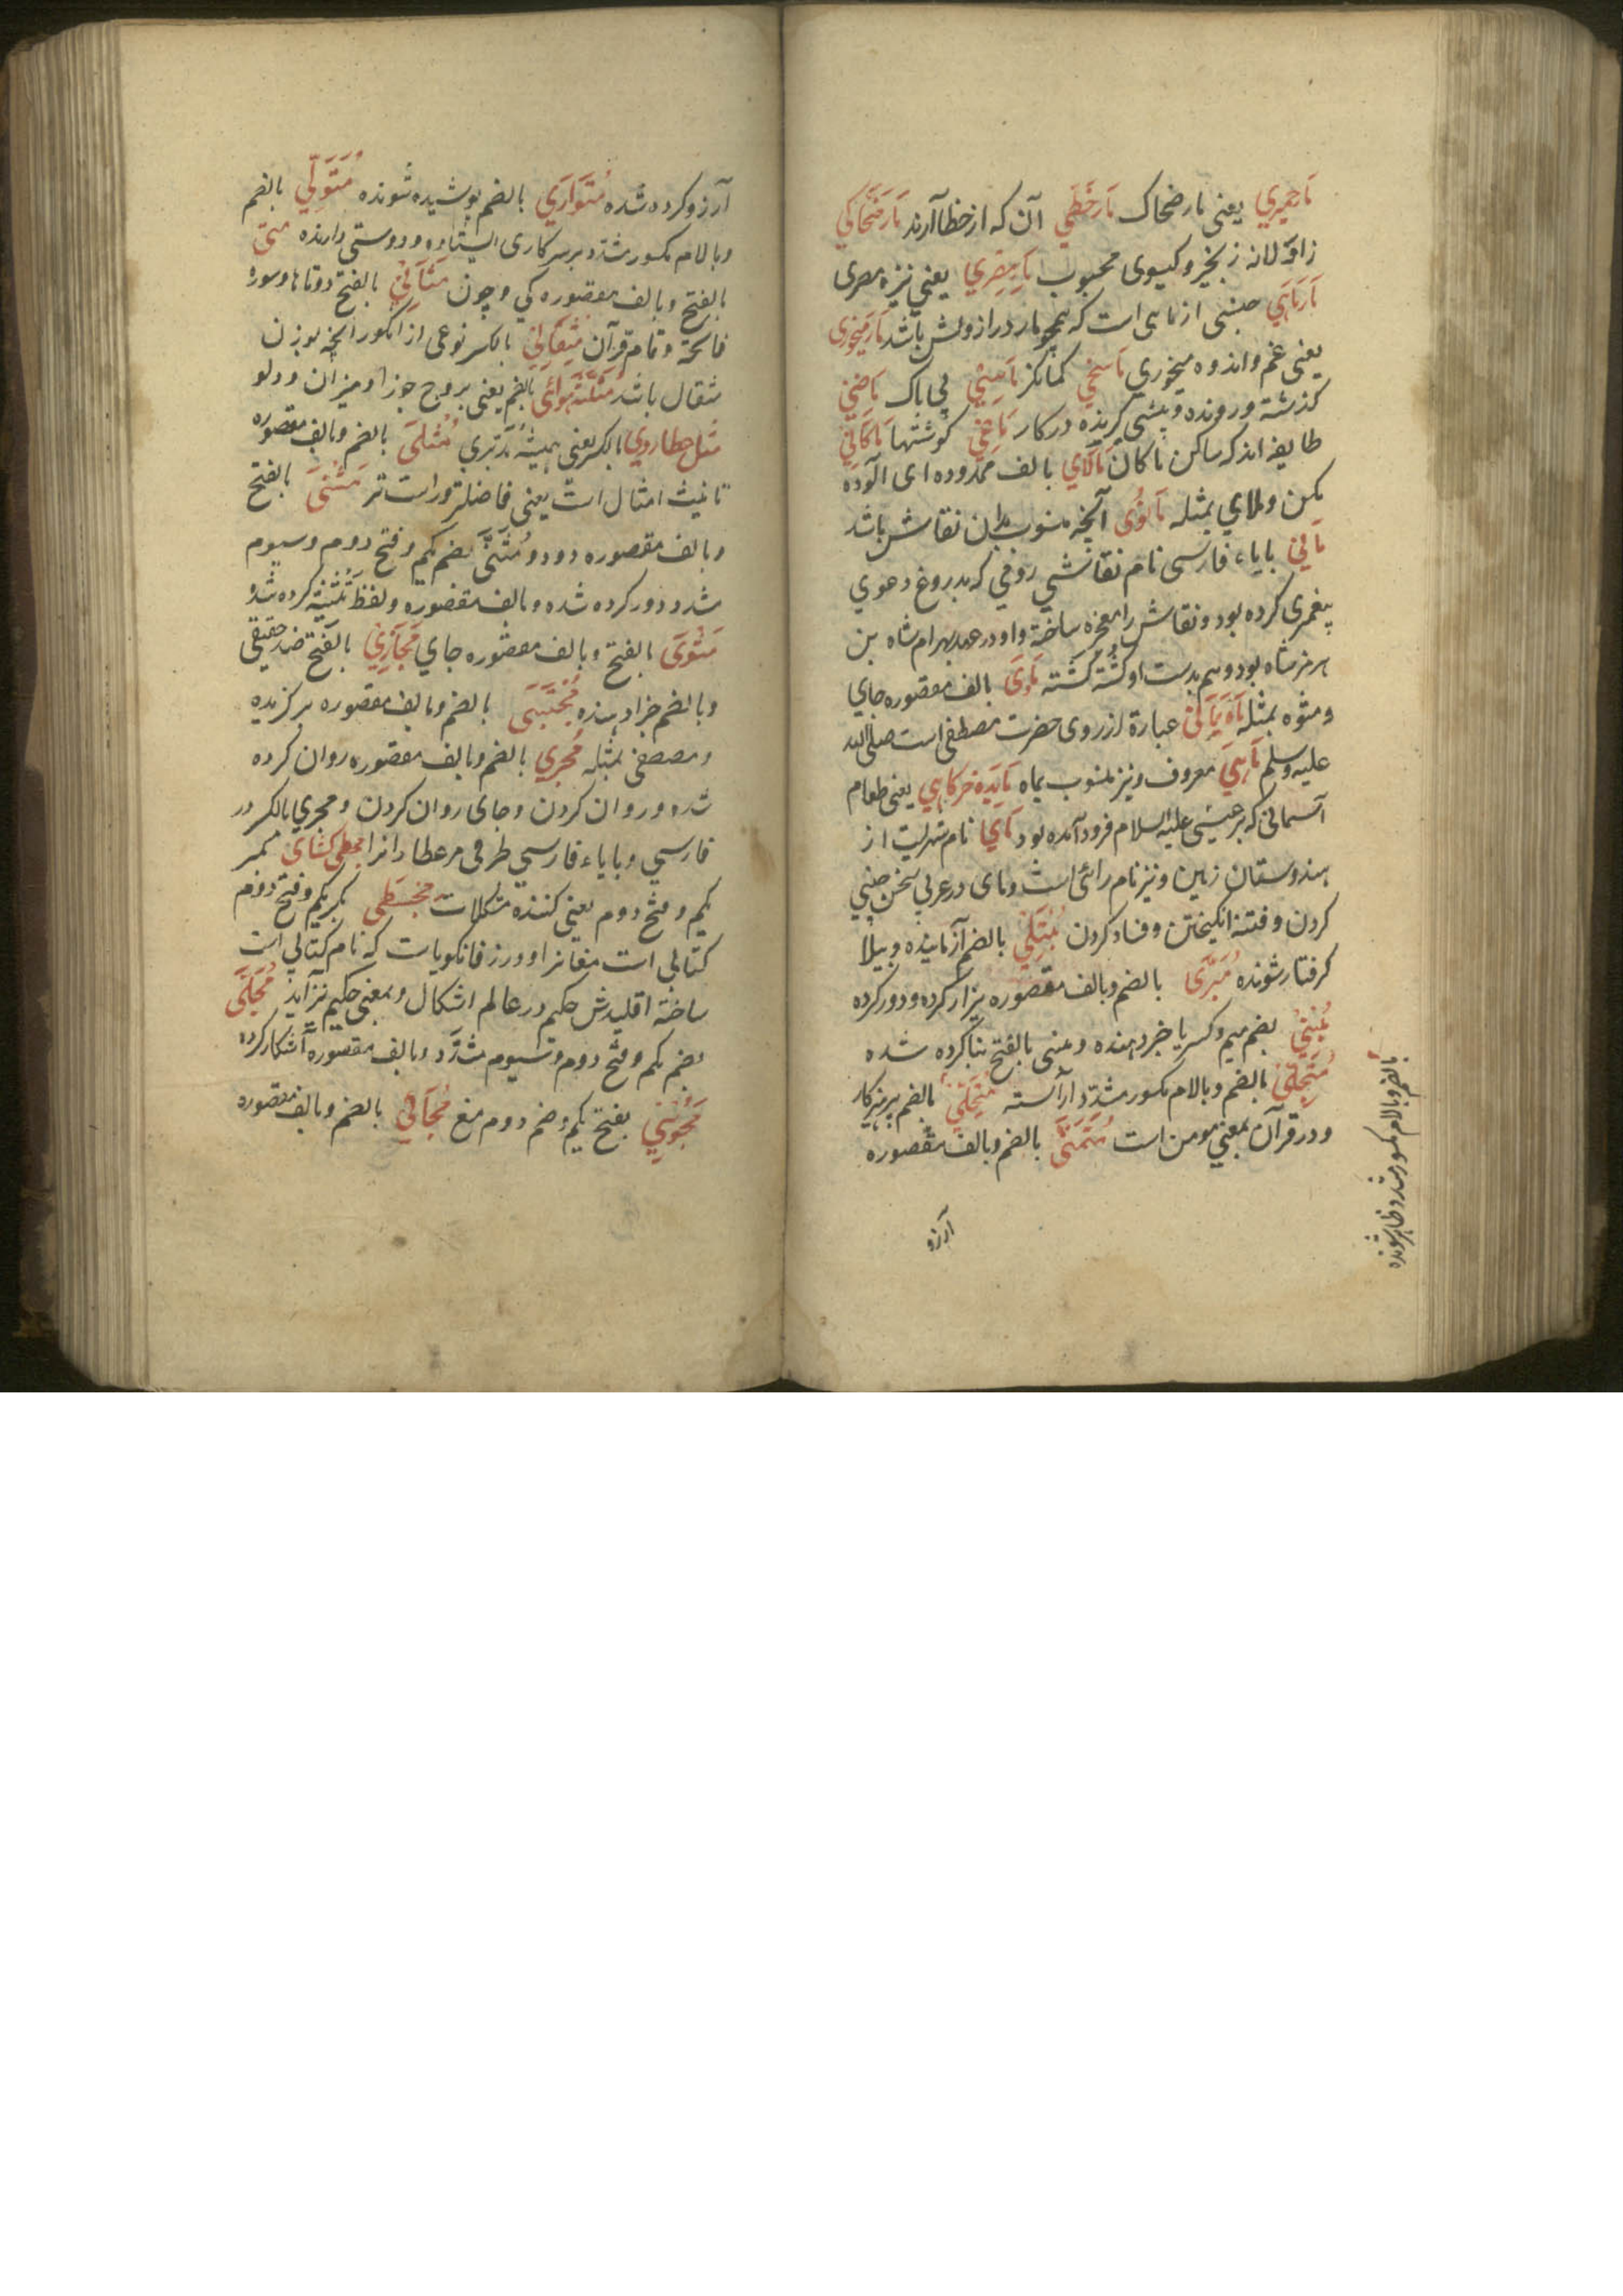 مارحمیری یعنی مار ضحاک مارخطی آن که از خطا آرند مارضحاکی
زاولانه زنجیر و کیسوی محبوب مار مصری یعنی نیزه مصری
مارماهی جنسی از ماهی است که همچو مار دراز ولش باشد مارمیخوری
یعنی غم و اندوه میخوری ماسخی کمانکر ماسی بی باک ماضی
کذشته و رونده و پیشی کرنده در کار ماعی کوشتها ماکانی
طایفه اند که ساکن ماکان مالای بالف ممدوده ای الوده
مکن و ملای بمثله مانوی آنچه منسوب بدان نقاش باشد
مانی بایاء فارسی نام نقاشی رومی که بدروغ دعوی
پیغمبری کرده بود و نقاشی را معجزه ساخته و او در عهد بهرام شاه بن
هرمز شاه بود و هم بدست او کشته کشته ماوی بالف مقصوره جای
ومثوه بمثله عبارة از روی حضرت مصطفی است صلی الله
علیه وسلم ماهی معروف و نیز منسوب بماه مایده خرکاهی یعنی طعام
آسمانی که بر عیسی علیه السلام فرود آمده بود مای نام شهریست از
هندوستان زمین و نیز نام رائی است و مای در عربی سخن چینی
کردن و فتنه انکیختن و فساد کردن مبتلی بالضم آزماینده و ببلا
کرفتار شونده مبری بالضم و بالف مقصوره بیزار کرده و دور کرده
مبنی بضم میم و کسر یا خبر دهنده و مبنی بالفتح بنا کرده شده
متجلی بالضم و بالام مکسور مشدد آراسته متحلی بالضم پرهیزکار
و در قرآن بمعنی مومن است متمنی بالضم و بالف مقصوره
آرزو
بالضم و بالام مکسور مشدد ظاهر شونده
آرزو کرده شده متواری بالضم پوشیده شونده متولی بالضم
و بالام مکسور مشدد بر سر کاری ایستاده و دوستی دارنده متی
بالفتح و بالف مقصوره کی و چون مثانی بالفتح دوتاها و سوره
فاتحة و تمام قرآن مثقالی بالکسر نوعی از انکور انچه بوزن
مثقال باشد مثلثه هوائی بالضم یعنی بروج جوزا و میزان و دلو
مثل عطاروی بالکسر یعنی همیشه مدبری مثلی بالضم و بالف مقصوره
تانیث امثال است یعنی فاضلتر و راست تر مثنی بالفتح
و بالف مقصوره دودو و مثنی بضم یکم و فتح دوم و سیوم
مشدد دور کرده شده و بالف مقصوره و لفظ تثنیه کرده شده
مثوی بالفتح و بالف مقصوره جای مجازی بالفتح ضد حقیقی
و بالضم جزا دهنده مجتبی بالضم و بالف مقصوره برکزیده
و مصطفی بمثله مجری بالضم و بالف مقصوره روان کرده
شده و روان کردن و جای روان کردن و مجری بالکسر در
فارسی و بایاء فارسی ظرفی مر عطارانرا مجطی کشای بکسر
یکم و فتح دوم یعنی کننده مشکلات مجسطی بکسر یکم و فتح دوم
کتابی است که نام کتابی است
ساخته اقلیدش حکیم در عالم اشکال و بمعنی حکیم نیز آید مجلی
بضم یکم و فتح دوم و سیوم مشدد و بالف مقصوره آشکار کرده
مجوسی بفتح یکم و ضم دوم مغ مجالی بالضم و بالف مقصوره